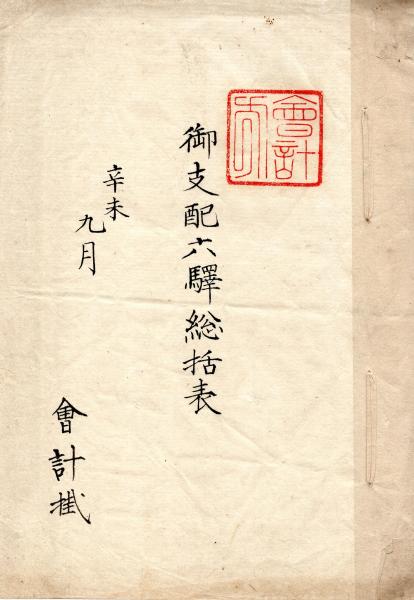 會計
御支配六驛総括表
辛未
九月
會計掛